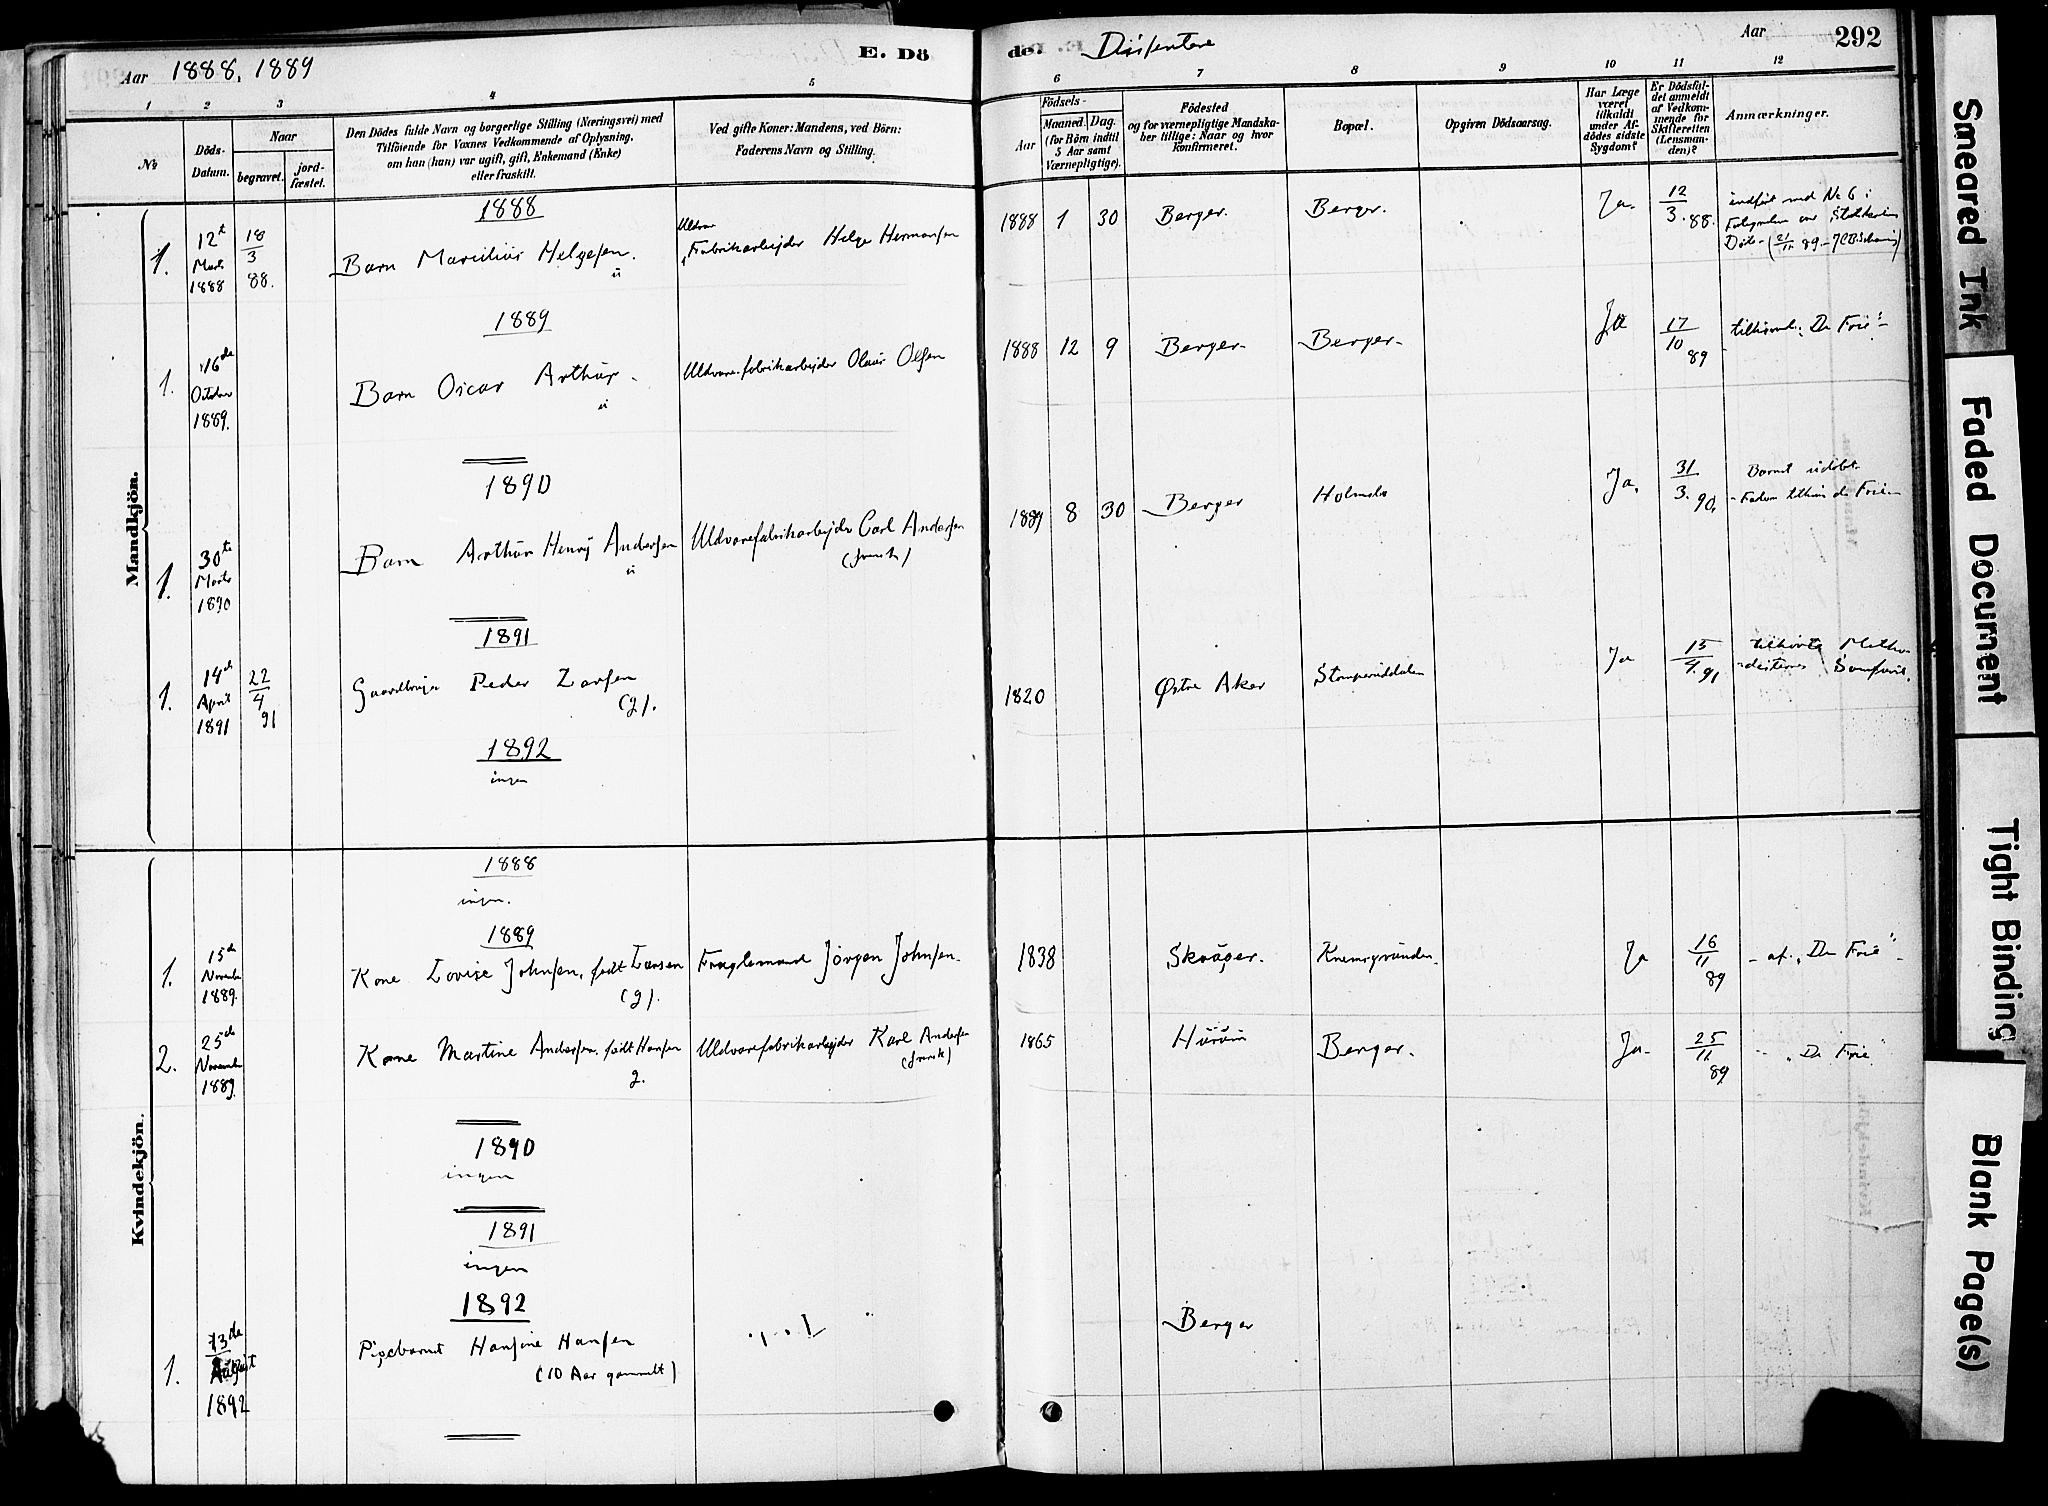 Aar 1888, 1889
E. Dö
de.
Dissentere
Aar
292
1 2 3 4 5
6 7 8 9 10 11 12
No
Döds-
Datum.
Naar
begravet.
jord-
fæstet.
Den Dödes fulde Navn og borgerlige Stilling (Næringsvei) med
Tilföiende for Voxnes Vedkommende af Oplysning,
om hun (han) var ugift, gift, Enkemand (Enke)
eller fraskilt.
Ved gifte Koner: Mandens, ved Börn:
Faderens Navn og Stilling.
Födsels-
Aar
Maaned.
Dag.
(for Börn indtil
5 Aar samt
Værnepligtige).
Födested
og for værnepligtige Mandska-
ber tillige: Naar og hvor
konfirmeret.
Bopæl.
Opgiven Dödsaarsag.
Har Læge
været
tilkaldt
under Af-
dödes sidste
Sygdom?
Er Dödsfal-
det anmeldt
af Vedkom-
mende for
Skifteretten
(Lensman-
den)?
Anmærkninger.
Mandkjön.
1888
1. 12t Marts 1888 18/3 88. Barn Marcilius Helgesen. u Uldvare Fabrikarbejder Helge Hermansen 1888 1 30 Berger. Berger. Ja. 12/3. 88. indført med No 6 i
Døbte (21/11 89
1889
1. 16de October 1889. Barn Oscar Arthur. u Uldvarefabrikarbejder Olaus Olsen 1888 12 9 Berger Berger Ja 17/10 89 De Frie"
1890
1. 30te Marts 1890 Barn Arthur Henry Andersen u Uldvarefabrikarbejder Carl Andersen (svensk) 1889 8 30 Berger Holmsbo Ja. 31/3. 90. Barnet udøbt
de Frie
1891
1. 14de April 1891 22/4 91 Gaardbruger Peder Larsen (g). 1820 Østre Aker Ja 15/4. 91 tilhørte Metho-
disternes Samfund.
1892
ingen
Kvindekjön.
1888
ingen.
1889
1. 15de November 1889. Kone Lovise Johnsen, født Larsen (g). Jörgen Johnsen. 1838 Skoger. Ja 16/11 89 - af "De Frie"
2. 25de November 1889. Kone Martine Andersen født Hansen g. Uldvarefabrikarbejder Karl Andersen (svensk) 1865 Hurum Berger. Ja. 25/11. 89 "De Frie"
1890
ingen
1891
ingen
1892
1. 13de August 1892 Pigebarnet Hansine Hansen (10 Aar gammelt) Berger
Smeared Ink
Faded Document
Tight Binding
Blank Page(s)